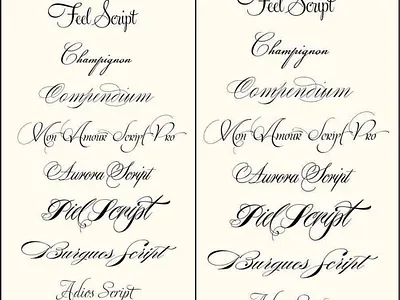 Feel Script
Champignon
Compendium
Mon Amour Script Pro
Aurora Script
Piel Script
Burgues Script
Adios Script
Feel Script
Champignon
Compendium
Mon Amour Script Pro
Aurora Script
Piel Script
Burgues Script
Adios Script